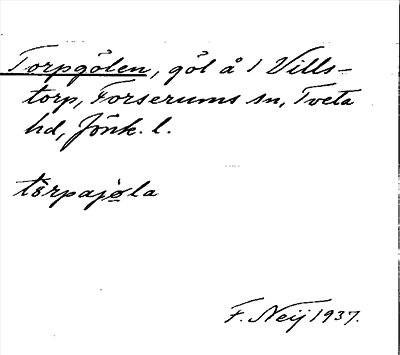 Torpgölen, göl å 1 Vills-
torp, Forserums sn, Tveta
hd, Jönk. l.
tɷ̀rpajø̀la
F. Neij 1937.